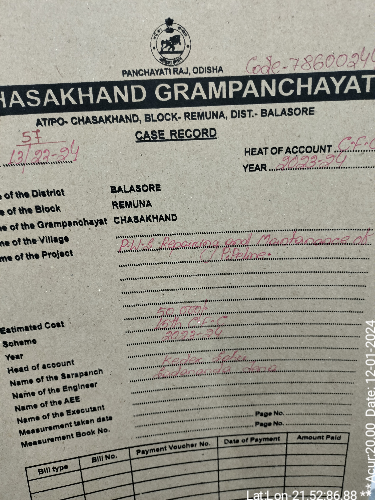 PANCHAYATI RAJ, ODISHA
Code-78600244
HASAKHAND GRAMPANCHAYAT
ATIPO- CHASAKHAND, BLOCK- REMUNA, DIST.- BALASORE
CASE RECORD
57
13/22-24
HEAT OF ACCOUNT
YEAR 2022-24
e of the District BALASORE
e of the Block REMUNA
e of the Grampanchayat CHASAKHAND
me of the Village
me of the Project Repairing and Maintanance of
Estimated Cost
Scheme
Year
Head of account
Name of the Sarapanch
Name of the Engineer
Name of the AEE
Name of the Executant
Measurement taken date Page No.
Measurement Book No. Page No.
Bill type Bill No. Payment Voucher No. Date of Payment Amount Paid
Lat Lon 21.52.86.88 **Acur:20.00 Date:12-01-2024